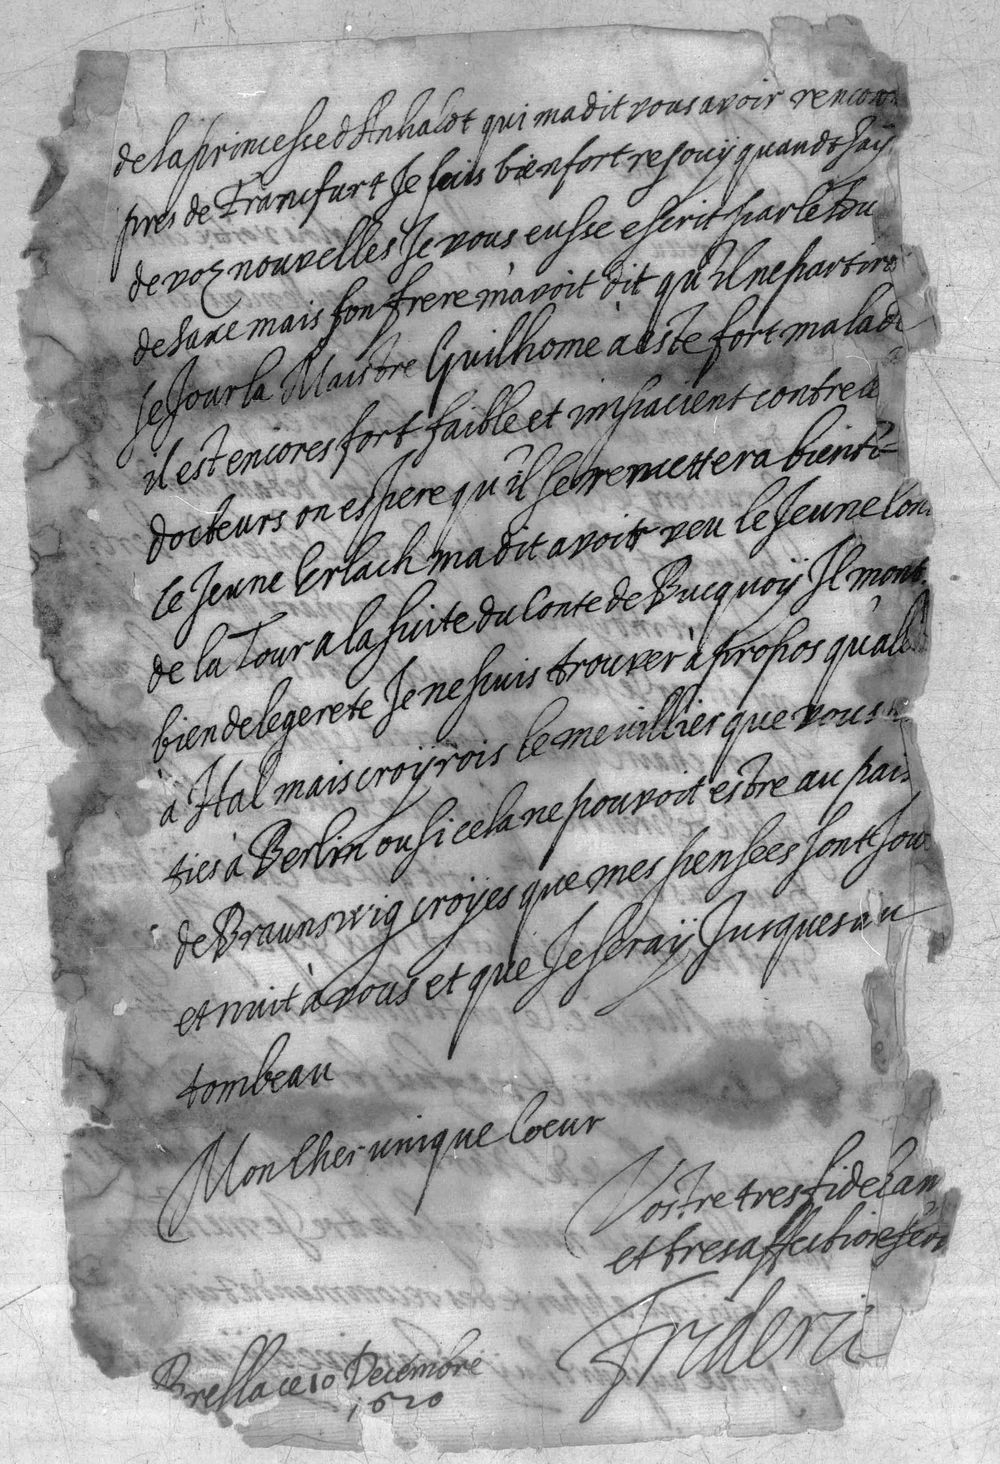 de la princesse d Anhaldt qui ma dit vous avoir rencon
pres de Francfurt Je suis bien fort resouij quand Jaij
de voz nouvelles Je vous eusse escrit par le Du
de Saxe mais son frere mavoit dit qu'il ne partiro
ce Jour la Maistre Guilhome à esté fort malade
il est encores fort faible et impacient contre le
docteurs on espere qu'il se remettera bientò
Le Jeune Erlach ma dit avoir veu le Jeune Con
de la Tour a la suite du Conte de Bucquoij Il mont
bien de legerete Je ne puis trouver à propos qu'all
à Hal mais croijrois le meuillier que vous
ties à Berlin ou si cela ne pouvoit estre au pais
de Braunswig croijes que mes pensees sont Jou
et nuit à vous et que Je seraij Jusques au
tombeau
Mon Cher unique Coeur
Vostre tres fidel am
et tres affectioné ser
Frideric
Bresla ce 10 Decembre
1620